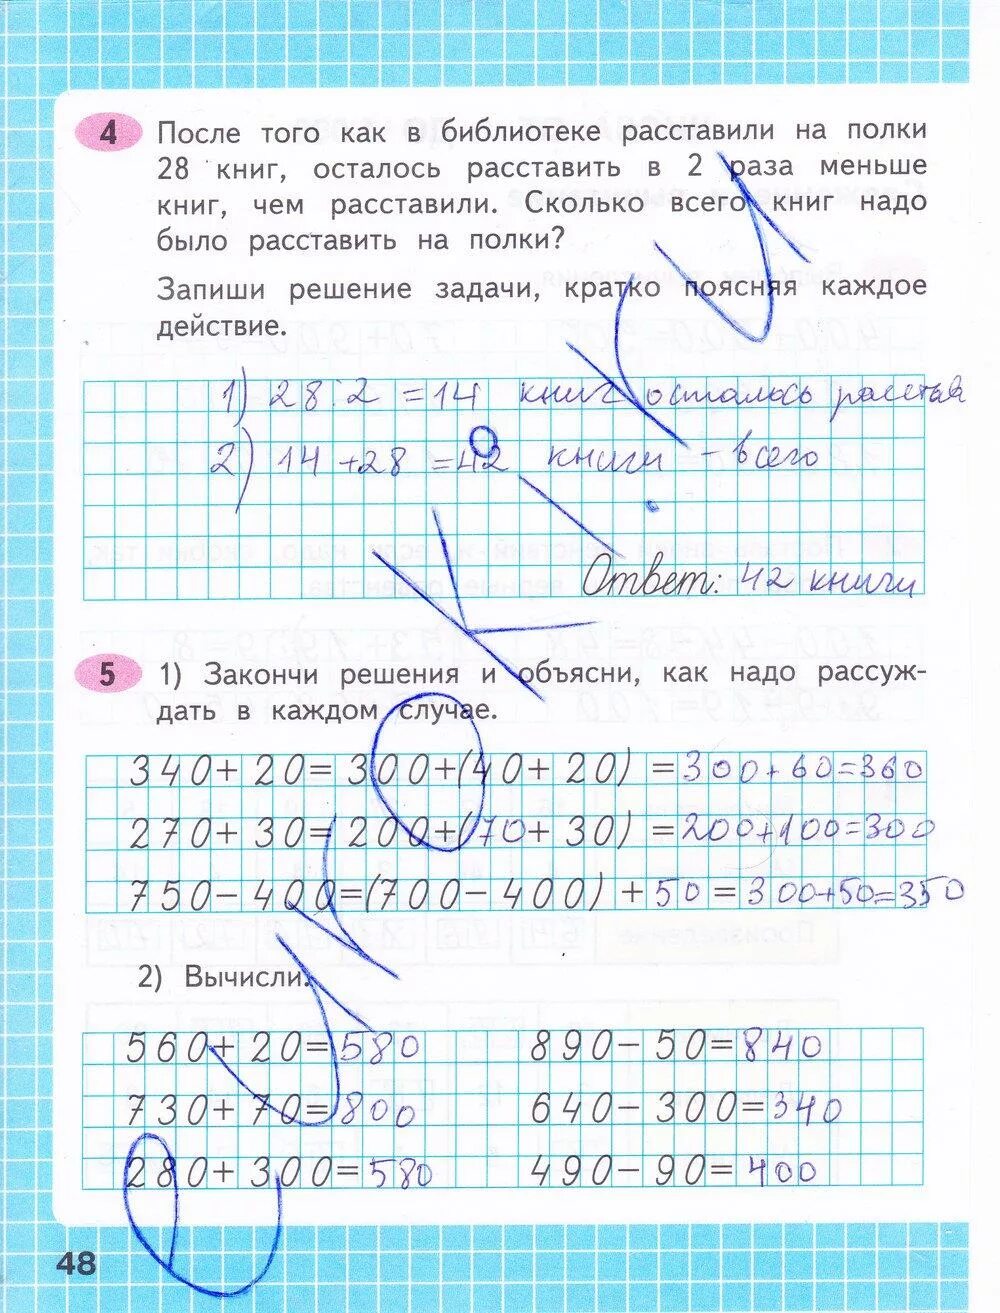 4 После того как в библиотеке расставили на полки
28 книг, осталось расставить в 2 раза меньше
книг, чем расставили. Сколько всего книг надо
было расставить на полки?
Запиши решение задачи, кратко поясняя каждое
действие.
1) 28:2=14 книг осталось расстав
2) 14+28=42 книги - всего
Ответ: 42 книги
5 1) Закончи решения и объясни, как надо рассуж-
дать в каждом случае.
340+20=300+(40+20)=300+60=360
270+30=200+(70+30)=200+100=300
750-400=(700-400)+50=300+50=350
2) Вычисли.
560+20=580 890-50=840
730+70=800 640-300=340
280+300=580 490-90=400
48